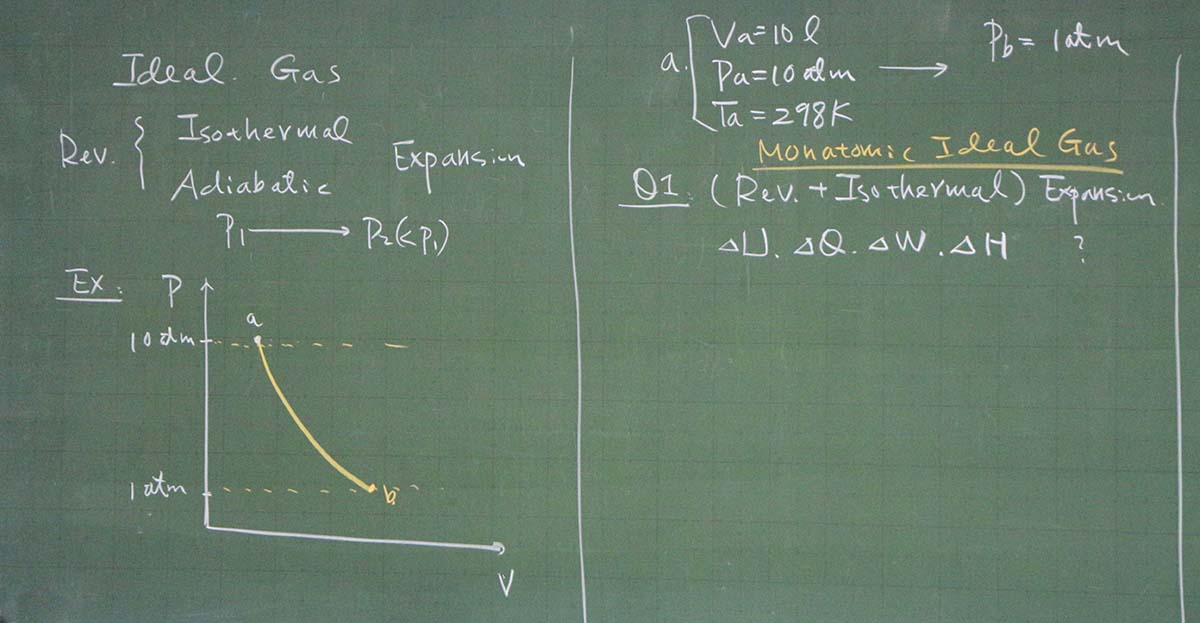 Ideal Gas
Rev. { Isothermal
Adiabatic
Expansion
P₁ ⟶ P₂(<P₁)
Ex:
P
a
10 atm
1 atm
b
V
a. Va=10 l
Pa=10 atm ⟶ Pb= 1 atm
Ta=298K
Monatomic Ideal Gas
Q1: (Rev. + Isothermal) Expansion.
△U. △Q. △W. △H ?